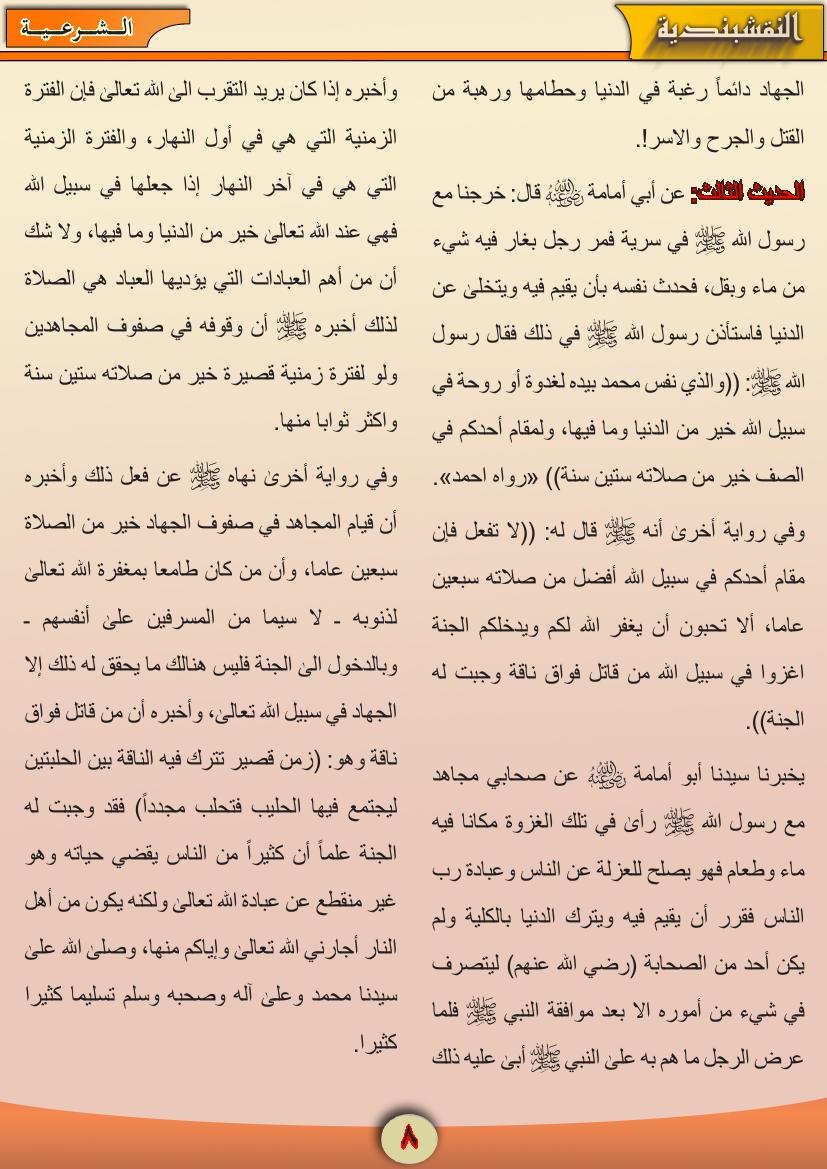 النقشبندية
الـشـرعـيـة
الجهاد دائماً رغبة في الدنيا وحطامها ورهبة من
القتل والجرح والاسر!.
الحديث الثالث: عن أبي أمامة رضي الله عنه قال: خرجنا مع
رسول الله ﷺ في سرية فمر رجل بغار فيه شيء
من ماء وبقل، فحدث نفسه بأن يقيم فيه ويتخلىٰ عن
الدنيا فاستأذن رسول الله ﷺ في ذلك فقال رسول
الله ﷺ: ((والذي نفس محمد بيده لغدوة أو روحة في
سبيل الله خير من الدنيا وما فيها، ولمقام أحدكم في
الصف خير من صلاته ستين سنة)) «رواه احمد».
وفي رواية أخرىٰ أنه ﷺ قال له: ((لا تفعل فإن
مقام أحدكم في سبيل الله أفضل من صلاته سبعين
عاما، ألا تحبون أن يغفر الله لكم ويدخلكم الجنة
اغزوا في سبيل الله من قاتل فواق ناقة وجبت له
الجنة)).
يخبرنا سيدنا أبو أمامة رضي الله عنه عن صحابي مجاهد
مع رسول الله ﷺ رأىٰ في تلك الغزوة مكانا فيه
ماء وطعام فهو يصلح للعزلة عن الناس وعبادة رب
الناس فقرر أن يقيم فيه ويترك الدنيا بالكلية ولم
يكن أحد من الصحابة (رضي الله عنهم) ليتصرف
في شيء من أموره الا بعد موافقة النبي ﷺ فلما
عرض الرجل ما هم به علىٰ النبي ﷺ أبىٰ عليه ذلك
وأخبره إذا كان يريد التقرب الىٰ الله تعالىٰ فإن الفترة
الزمنية التي هي في أول النهار، والفترة الزمنية
التي هي في آخر النهار إذا جعلها في سبيل الله
فهي عند الله تعالىٰ خير من الدنيا وما فيها، ولا شك
أن من أهم العبادات التي يؤديها العباد هي الصلاة
لذلك أخبره ﷺ أن وقوفه في صفوف المجاهدين
ولو لفترة زمنية قصيرة خير من صلاته ستين سنة
واكثر ثوابا منها.
وفي رواية أخرىٰ نهاه ﷺ عن فعل ذلك وأخبره
أن قيام المجاهد في صفوف الجهاد خير من الصلاة
سبعين عاما، وأن من كان طامعا بمغفرة الله تعالىٰ
لذنوبه ـ لا سيما من المسرفين علىٰ أنفسهم ـ
وبالدخول الىٰ الجنة فليس هنالك ما يحقق له ذلك إلا
الجهاد في سبيل الله تعالىٰ، وأخبره أن من قاتل فواق
ناقة وهو: (زمن قصير تترك فيه الناقة بين الحلبتين
ليجتمع فيها الحليب فتحلب مجدداً) فقد وجبت له
الجنة علماً أن كثيراً من الناس يقضي حياته وهو
غير منقطع عن عبادة الله تعالىٰ ولكنه يكون من أهل
النار أجارني الله تعالىٰ وإياكم منها، وصلىٰ الله علىٰ
سيدنا محمد وعلىٰ آله وصحبه وسلم تسليما كثيرا
كثيرا.
٨